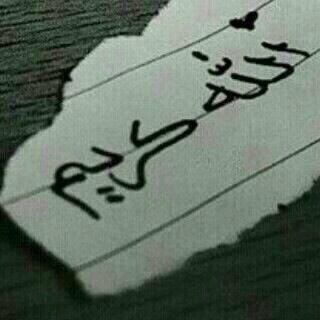 الله كريم